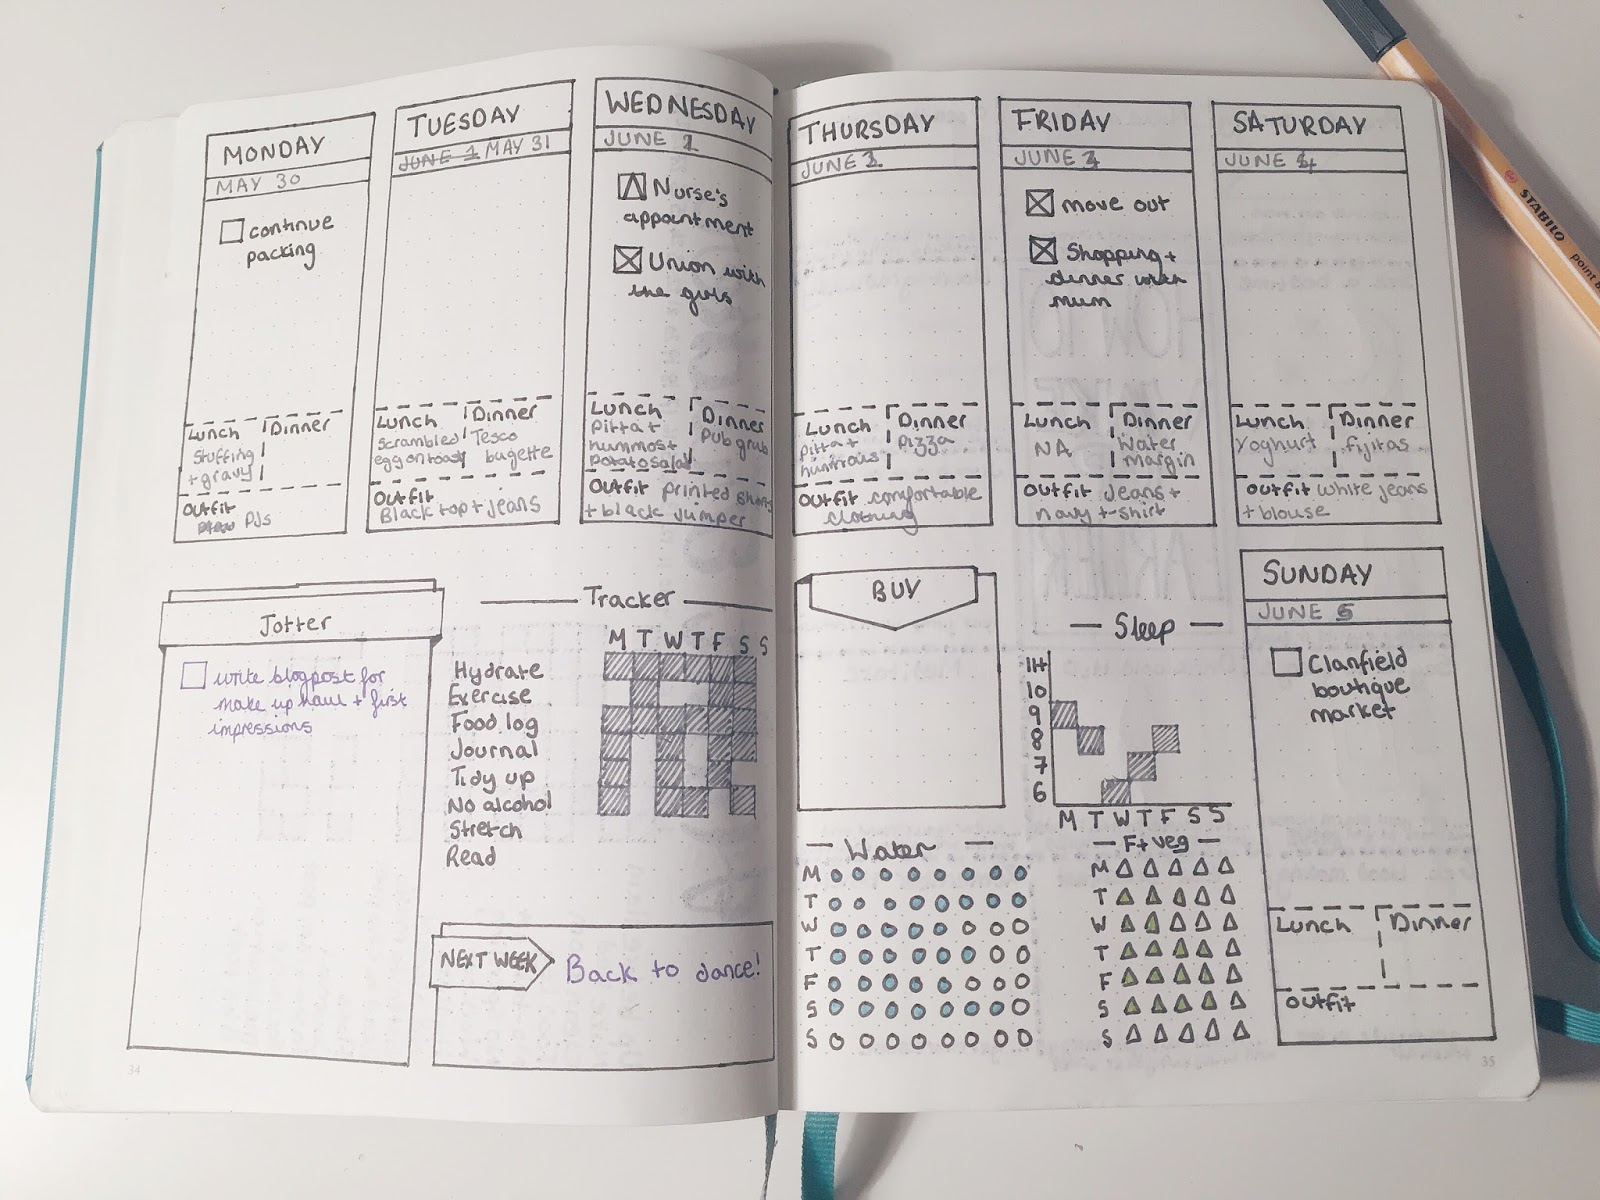 MONDAY
MAY 30
continue
packing
Lunch Dinner
Stuffing
+ gravy
Outfit
PJs
TUESDAY
JUNE 1 MAY 31
Lunch Dinner
Scrambled Tesco
egg on toast bagette
Outfit
Black top + jeans
WEDNESDAY
JUNE 1
Nurse's
appointment
Union with
the girls
Lunch Dinner
pitta + pub grub
hummos +
potato salad
Outfit printed shorts
+ black jumper
THURSDAY
JUNE 2
Lunch Dinner
pitta + pizza
Outfit comfortable
clothing
FRIDAY
JUNE 3
move out
Shopping +
dinner with
mum
Lunch Dinner
NA Water
margin
Outfit jeans +
navy t-shirt
SATURDAY
JUNE 4
Lunch Dinner
yoghurt fijitas
Outfit white jeans
+ blouse
Jotter
write blogpost for
make up haul + first
impressions
Tracker
M T W T F S S
Hydrate
Exercise
Food log
Journal
Tidy up
No alcohol
Stretch
Read
NEXT WEEK Back to dance!
BUY
Sleep
11+
10
9
8
7
6
M T W T F S S
Water
M
T
W
T
F
S
S
F+veg
M
T
W
T
F
S
S
SUNDAY
JUNE 5
Clanfield
boutique
market
Lunch Dinner
Outfit
34
35
STABILO
point